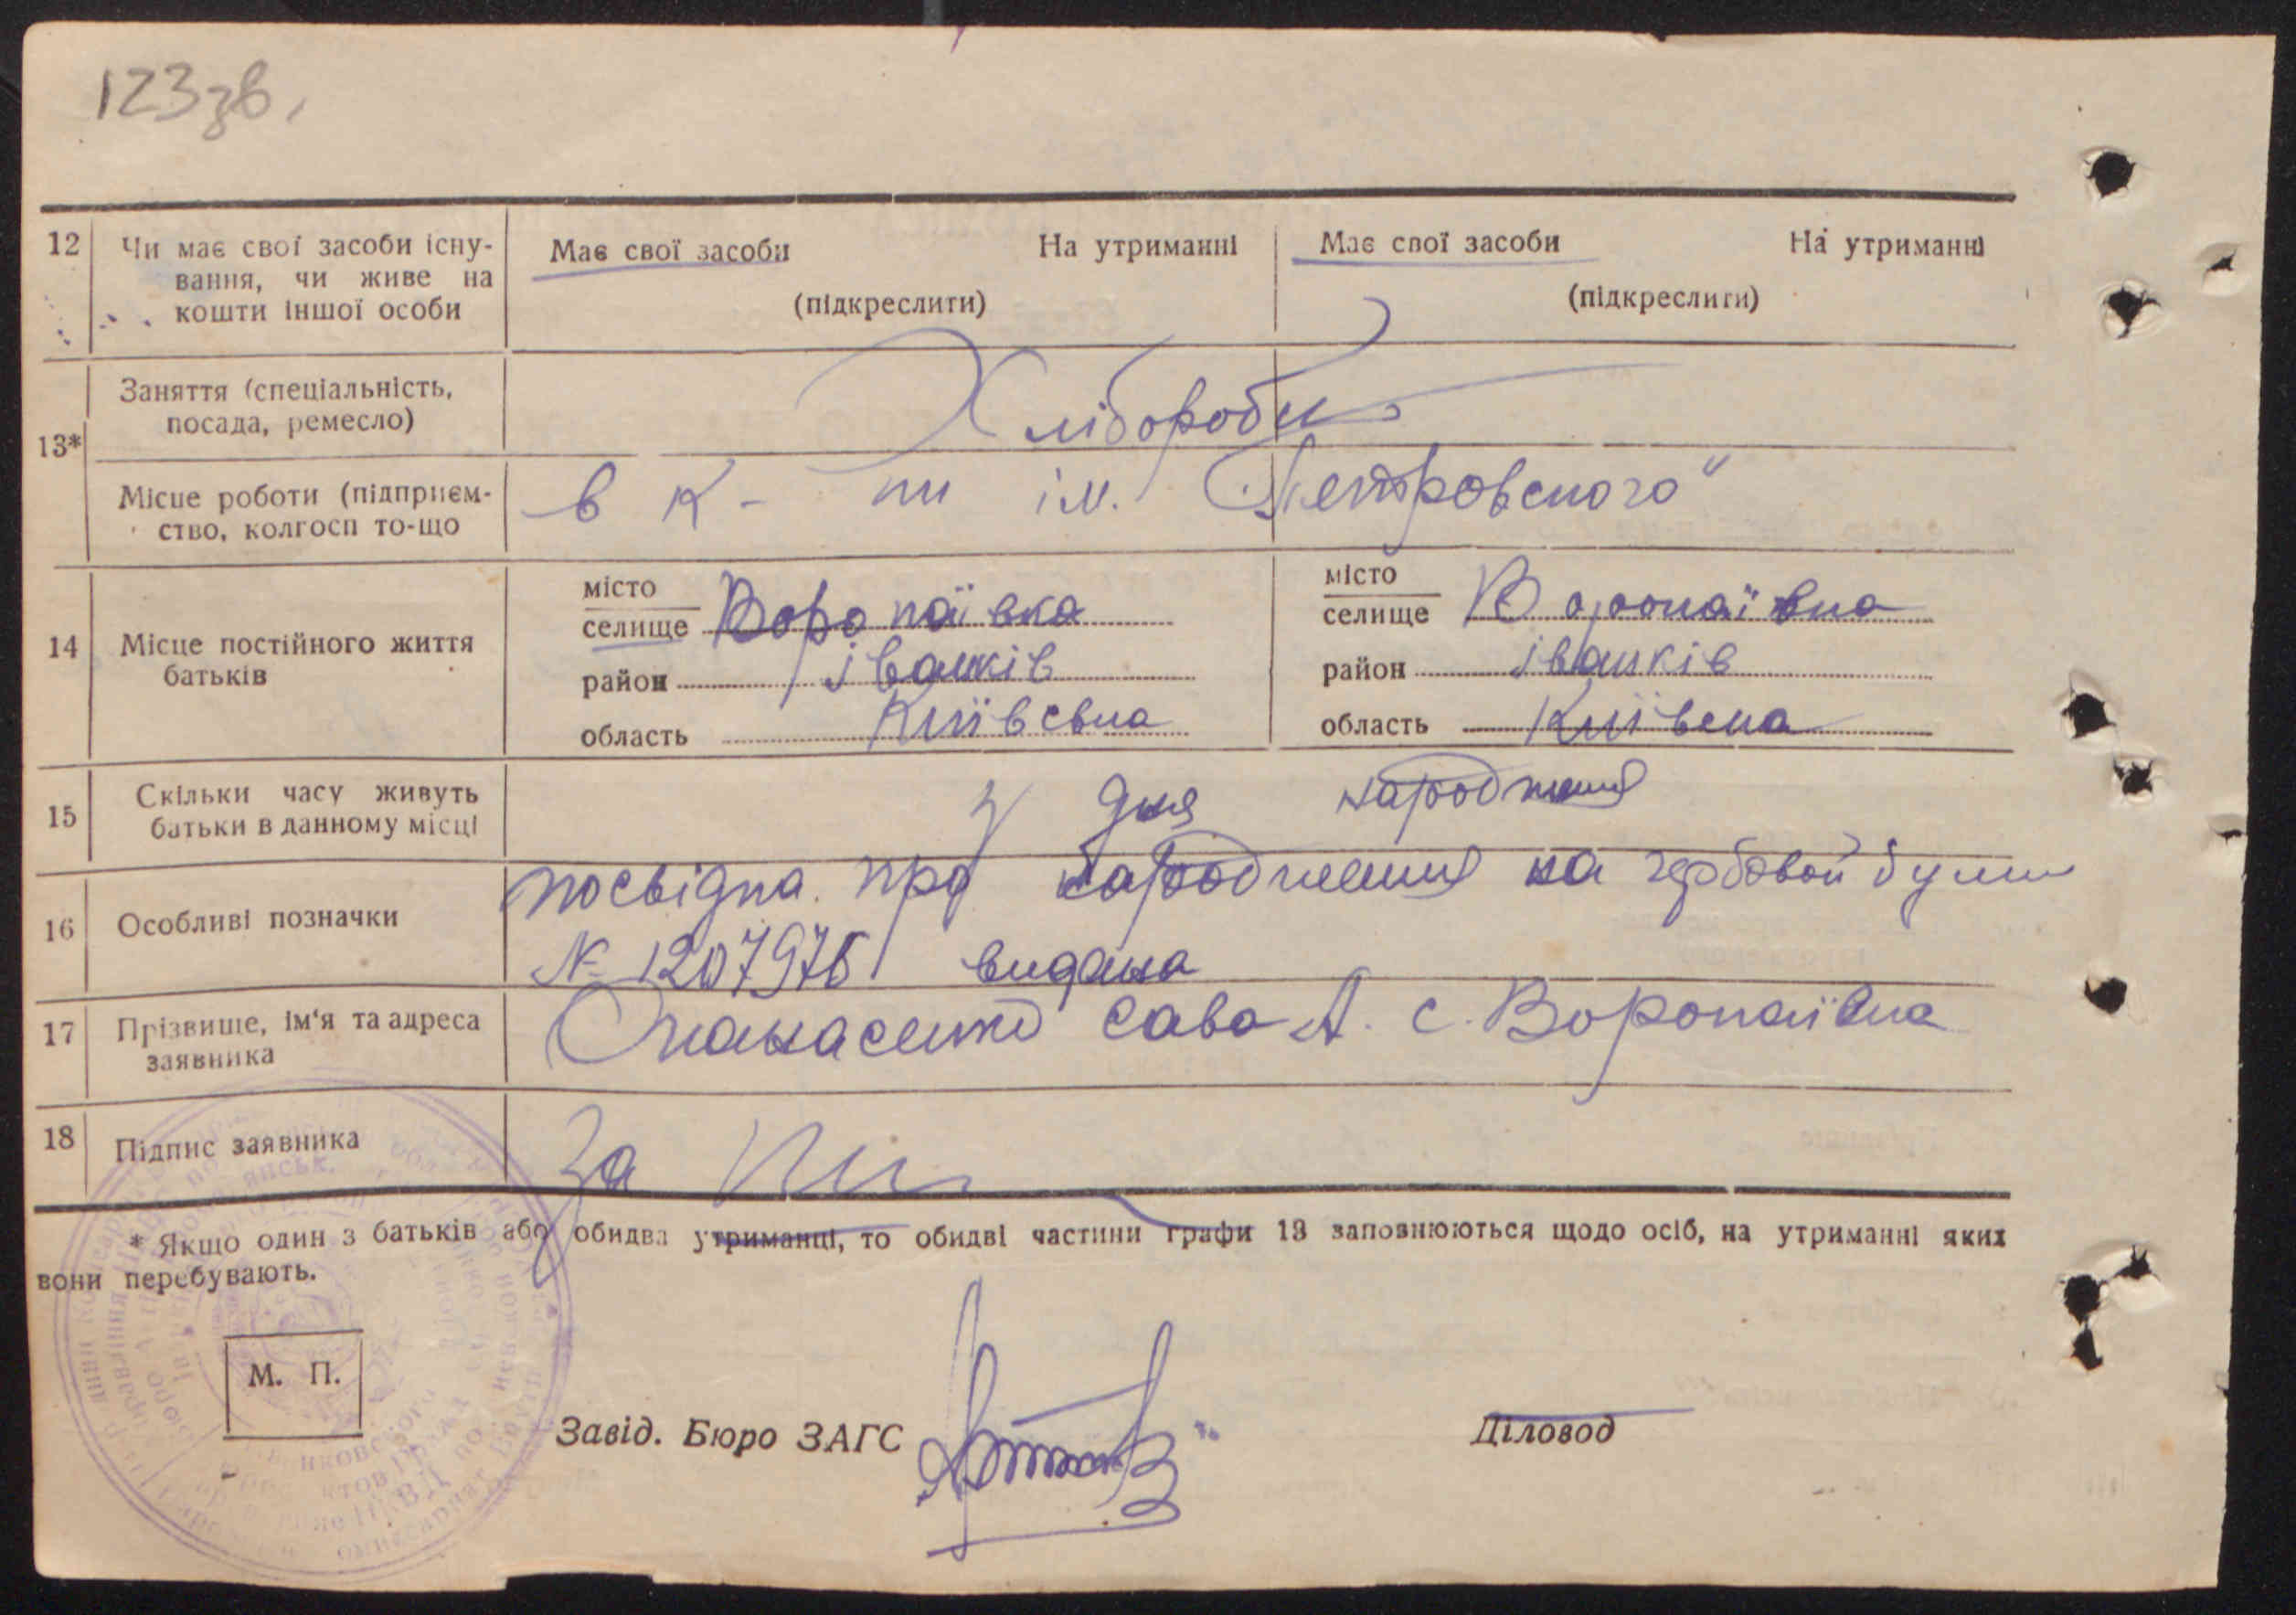 123зв.
12 Чи має свої засоби існу- Має свої засоби На утриманні Має свої засоби На утриманні
вання, чи живе на
кошти іншої особи (підкреслити) (підкреслити)
13* Заняття (спеціальність, Хлібороби
посада, ремесло)
Місце роботи (підприєм- в к-пи ім. Петровского"
ство, колгосп то-що
14 Місце постійного життя батьків
місто місто
селище Воропаївка селище Воропаївка
район Іванків район Іванків
область Київська область Київска
15 Скільки часу живуть з дня народження
батьки в данному місці
16 Особливі позначки посвідка про народження на гербовой бум
№ 1207976 видана
17 Прізвище, ім'я та адреса Опанасенко Сава А. с. Воропаївка
заявника
18 Підпис заявника За
* Якщо один з батьків або обидва утриманці, то обидві частини графи 13 заповнюються щодо осіб, на утриманні яких
вони перебувають.
М. П.
Завід. Бюро ЗАГС Діловод